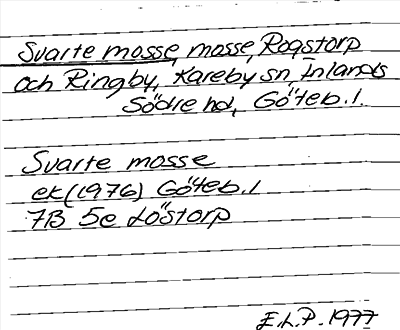 Svarte mosse, mosse, Rogstorp
och Ringby, Kareby sn Inlands
Södre hd, Göteb. l.
Svarte mosse
ek (1976) Göteb. l
7B 5e Löstorp
E.L.P. 1977